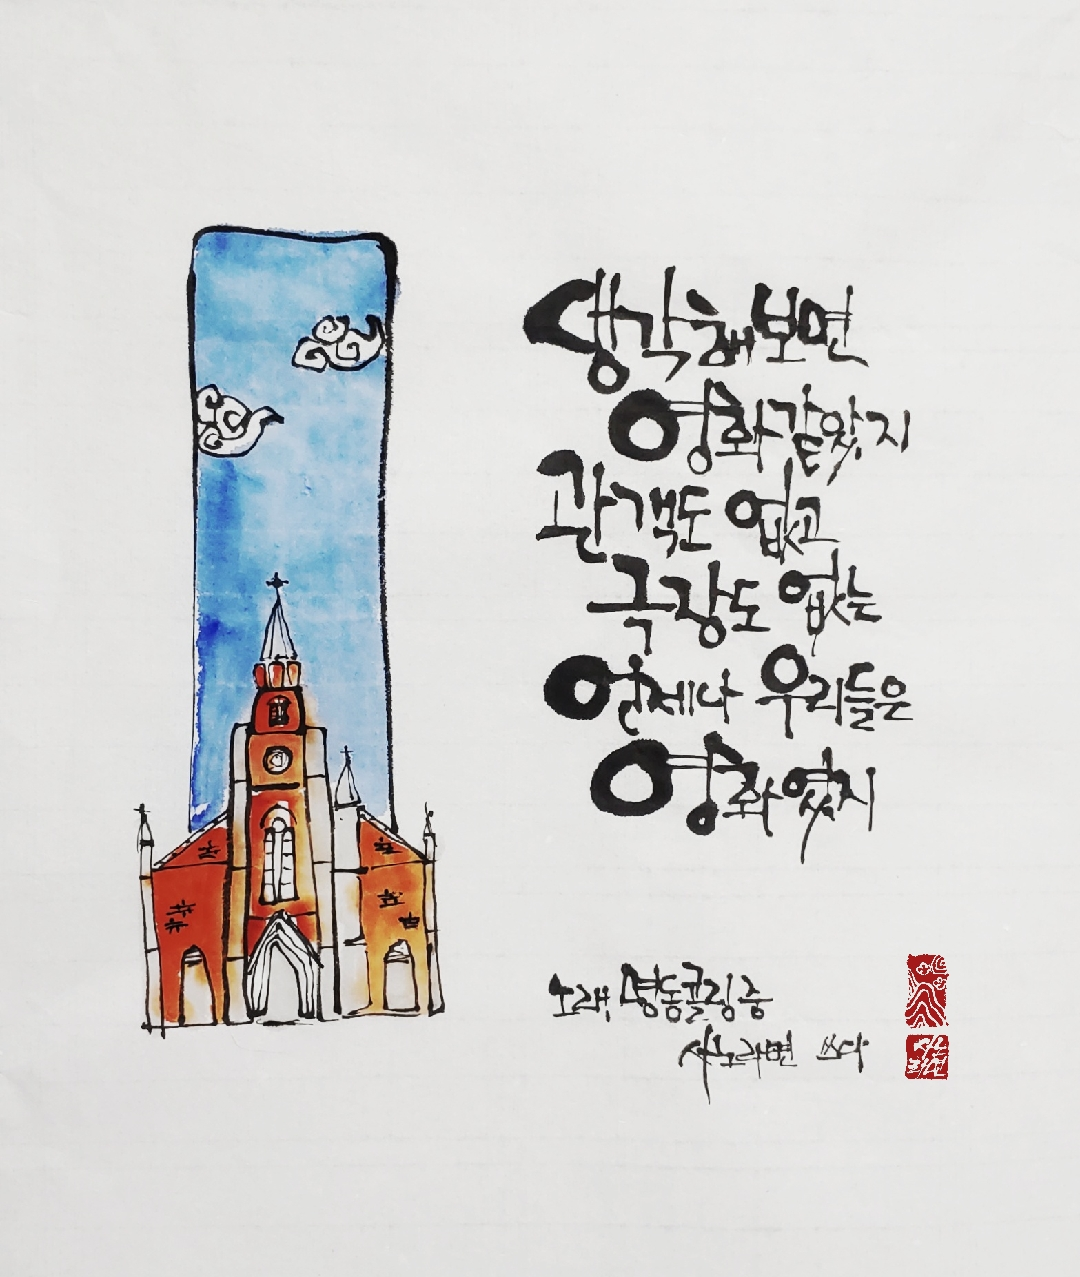 생각해보면
영화같았지
관객도 없고
극장도 없는
언제나 우리들은
영화였지
노래, 명동콜링 중
사노라면 쓰다